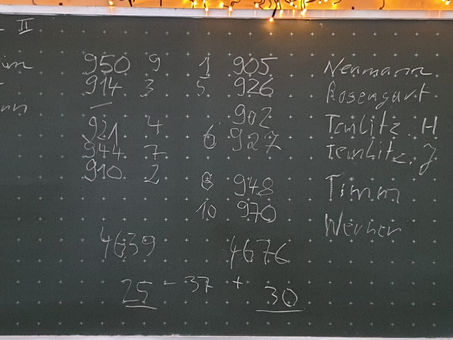 II
950 9 1 905 Neumann
914 3 5 926 Rosengart
— 902 H
921 4 6 927 J
944 7
910 2 8 948 Timm
10 970 Werner
4639 4676
25 - 37 + 30